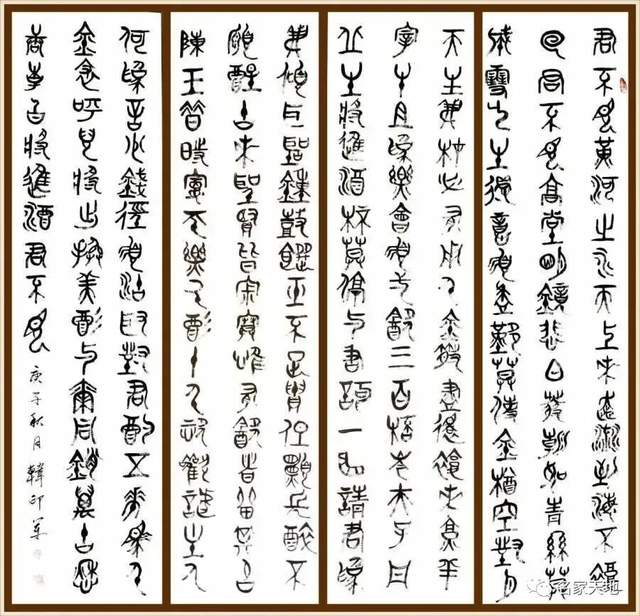 君不見黃河之水天上來奔流到海不復
回君不見高堂明鏡悲白髮朝如青絲莫
成雪人生得意須盡歡莫使金樽空對月
天生我材必有用千金散盡還復來烹羊
宰牛且為樂會須一飲三百杯岑夫子丹
丘生將進酒杯莫停與君歌一曲請君為
我傾耳聽鐘鼓饌玉不足貴但願長醉不
願醒古來聖賢皆寂寞惟有飲者留其名
陳王昔時宴平樂斗酒十千恣歡謔主人
何為言少錢徑須沽取對君酌五花馬千
金裘呼兒將出換美酒與爾同銷萬古愁
李白將進酒君不見
庚子秋月 韓印軍
名家天地